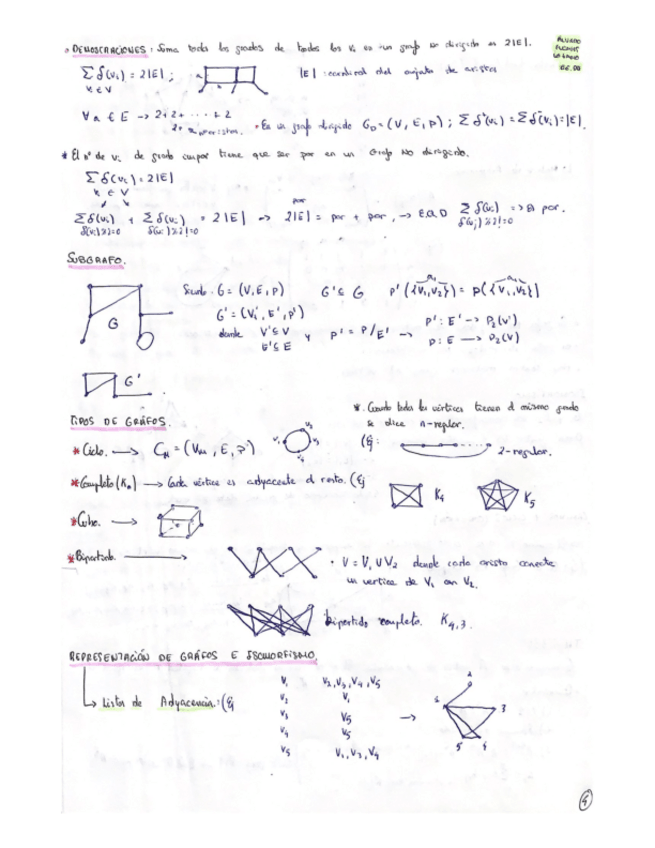 * DEMOSTRACIONES: Suma todos los grados de todos los vᵢ en un grafo no dirigido es 2|E|.
Σ δ(vᵢ) = 2|E| ; |E| : cardinal del conjunto de aristas
vᵢ ∈ V
∀ a ∈ E → 2+2+ ... + 2
* En un grafo dirigido G_D = (V, E, p) ; Σ δ⁺(vᵢ) = Σ δ⁻(vᵢ) = |E|.
* El nº de vᵢ de grado impar tiene que ser par en un Grafo No dirigido.
Σ δ(vᵢ) = 2|E|
vᵢ ∈ V
par
Σ δ(vᵢ) + Σ δ(vᵢ) = 2|E| → 2|E| = par + par, → Σ δ(vᵢ) => par.
δ(vᵢ)%2=0 δ(vᵢ)%2!=0 δ(vᵢ)%2!=0
SUBGRAFO.
Siendo G = (V, E, p) G' ⊆ G p'({v₁,v₂}) = p({v₁,v₂})
G' = (V', E', p')
donde V' ⊆ V y p' = p/E' → p' : E' → P₂(V')
E' ⊆ E p : E → P₂(V)
G
G'
TIPOS DE GRAFOS.
*. Cuando todos los vértices tienen el mismo grado
se dice n-regular.
(Ej: 2-regular.
* Ciclo. → Cₙ = (Vₙ, E, p)
* Completo (Kₙ) → Cada vértice es adyacente al resto. (Ej
K₄ K₅
* Cubo. →
* Bipartido. →
· V = V₁ ∪ V₂ donde cada arista conecta
un vertice de V₁ con V₂.
bipartido completo. K₄,₃.
REPRESENTACIÓN DE GRAFOS E ISOMORFISMO.
Listas de Adyacencia: (Ej
V₁ V₂, V₃, V₄, V₅
V₂ V₁
V₃ V₅
V₄ V₅
V₅ V₁, V₃, V₄